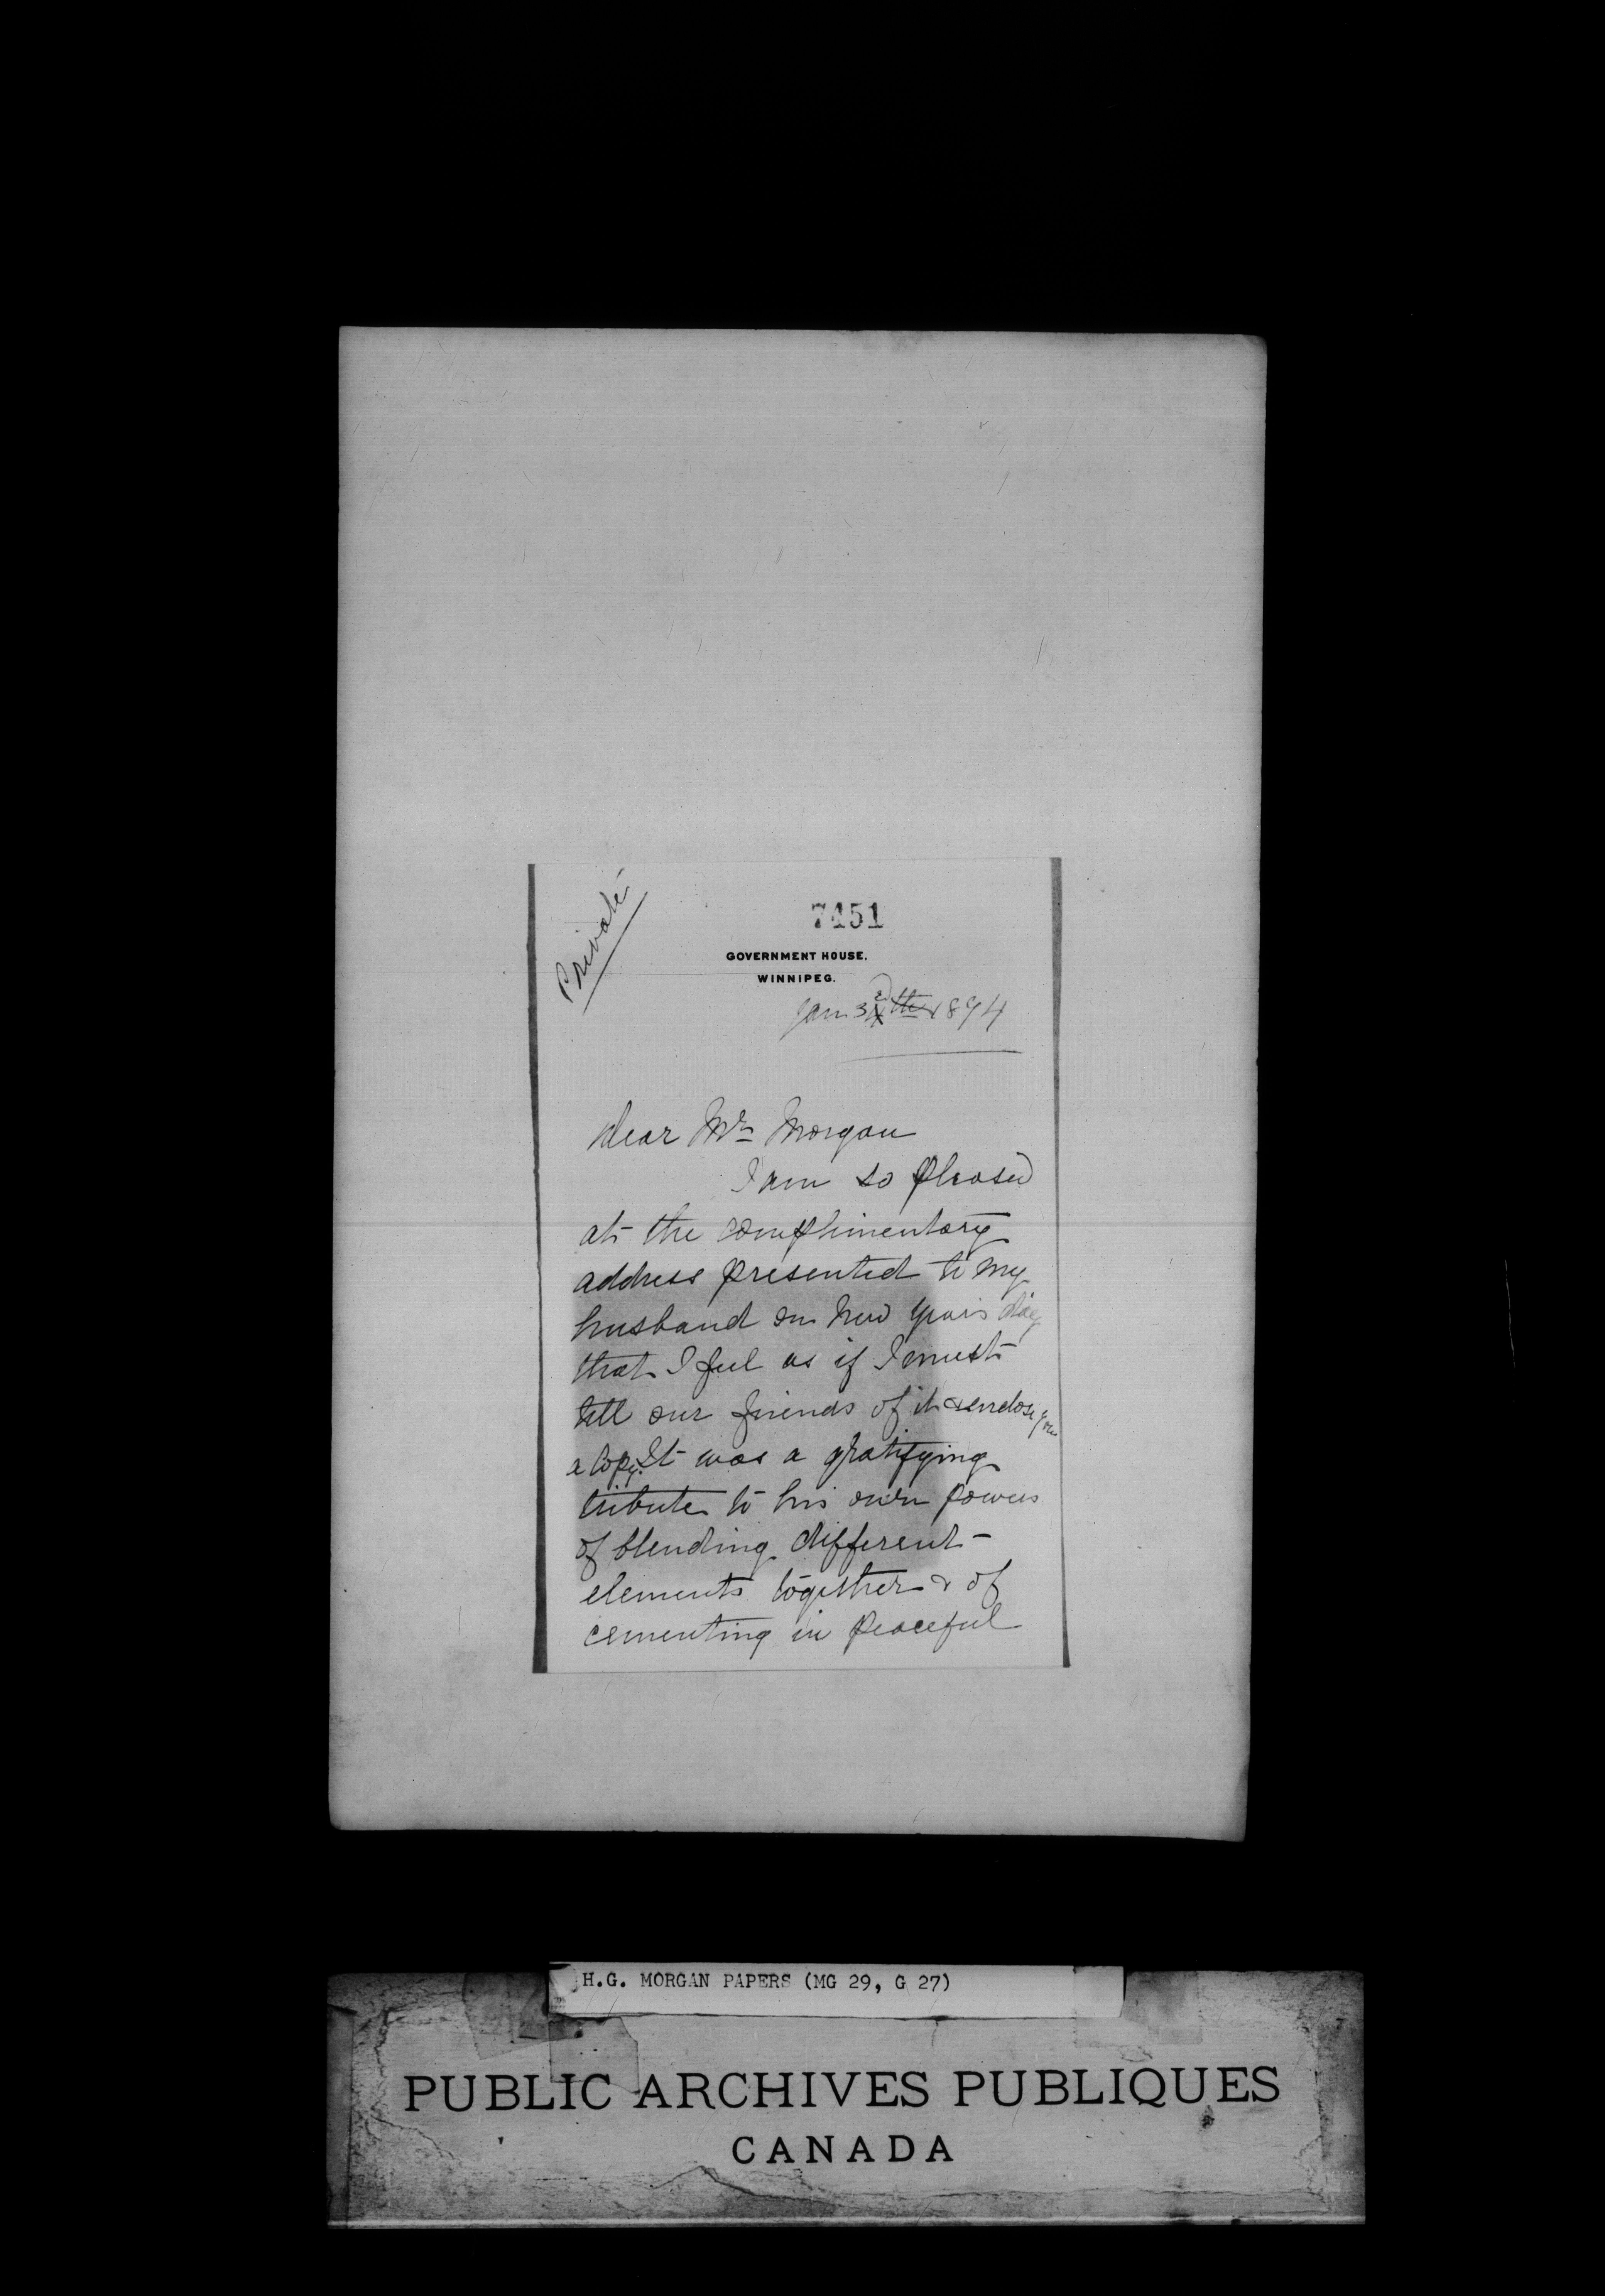 Private
7451
GOVERNMENT HOUSE,
WINNIPEG.
Jan 3 1894
Dear Mr Morgan
I am so pleased
at the complimentary
address presented to my
husband on New Years day
that I feel as if I must
tell our friends of it & enclose you
a copy. It was a gratifying
tribute to his own powers
of blending different
elements together & of
cementing in peaceful
H.G. MORGAN PAPERS (MG 29, G 27)
PUBLIC ARCHIVES PUBLIQUES
CANADA